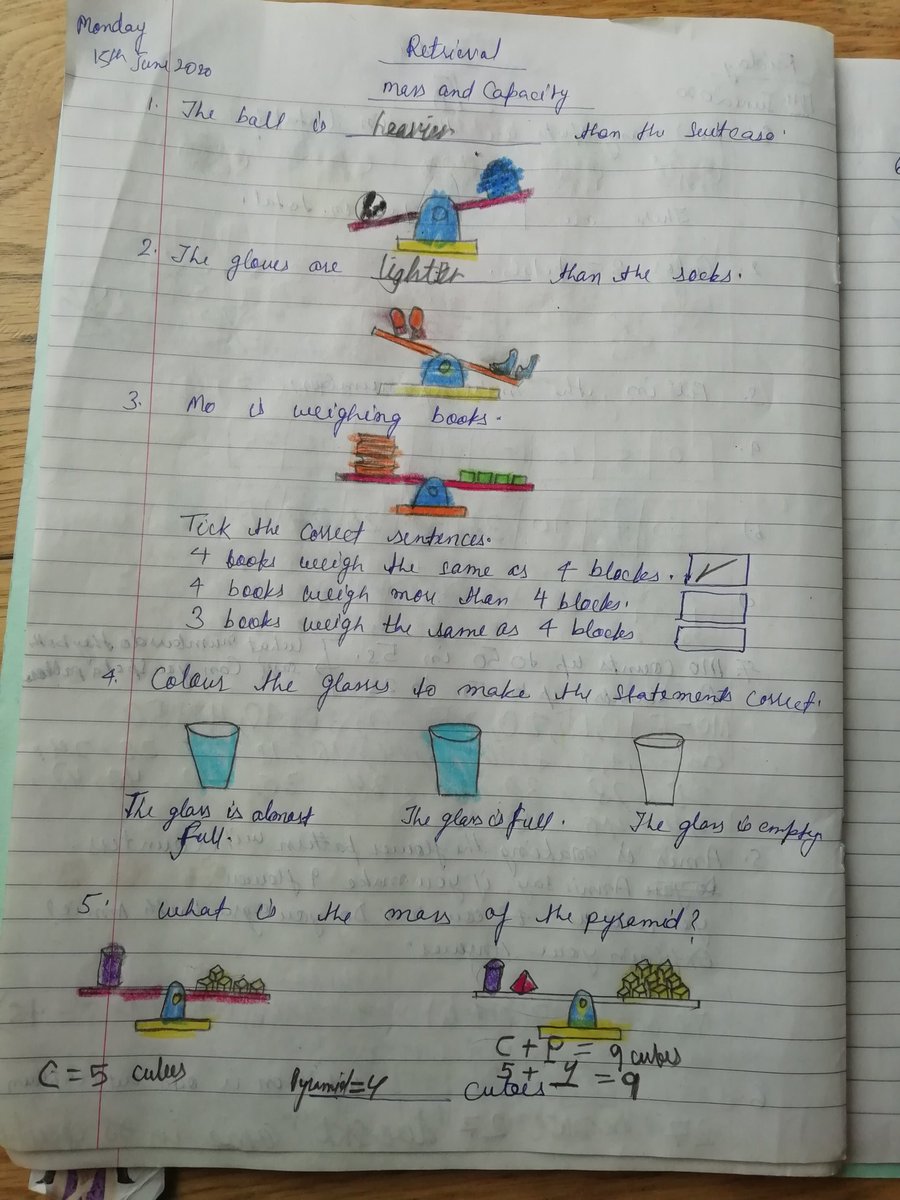 Monday
15th June 2020
Retrieval
mass and Capacity
1. The ball is heavier than the suitcase.
2. The gloves are lighter than the socks.
3. Mo is weighing books.
Tick the correct sentences.
4 books weigh the same as 4 blocks. ✓
4 books weigh more than 4 blocks.
3 books weigh the same as 4 blocks
4. Colour the glasses to make the statements correct.
The glass is almost full.
The glass is full.
The glass is empty
5. what is the mass of the pyramid?
C = 5 cubes
C + P = 9 cubes
5 + 4 = 9
Pyramid = 4 cubes